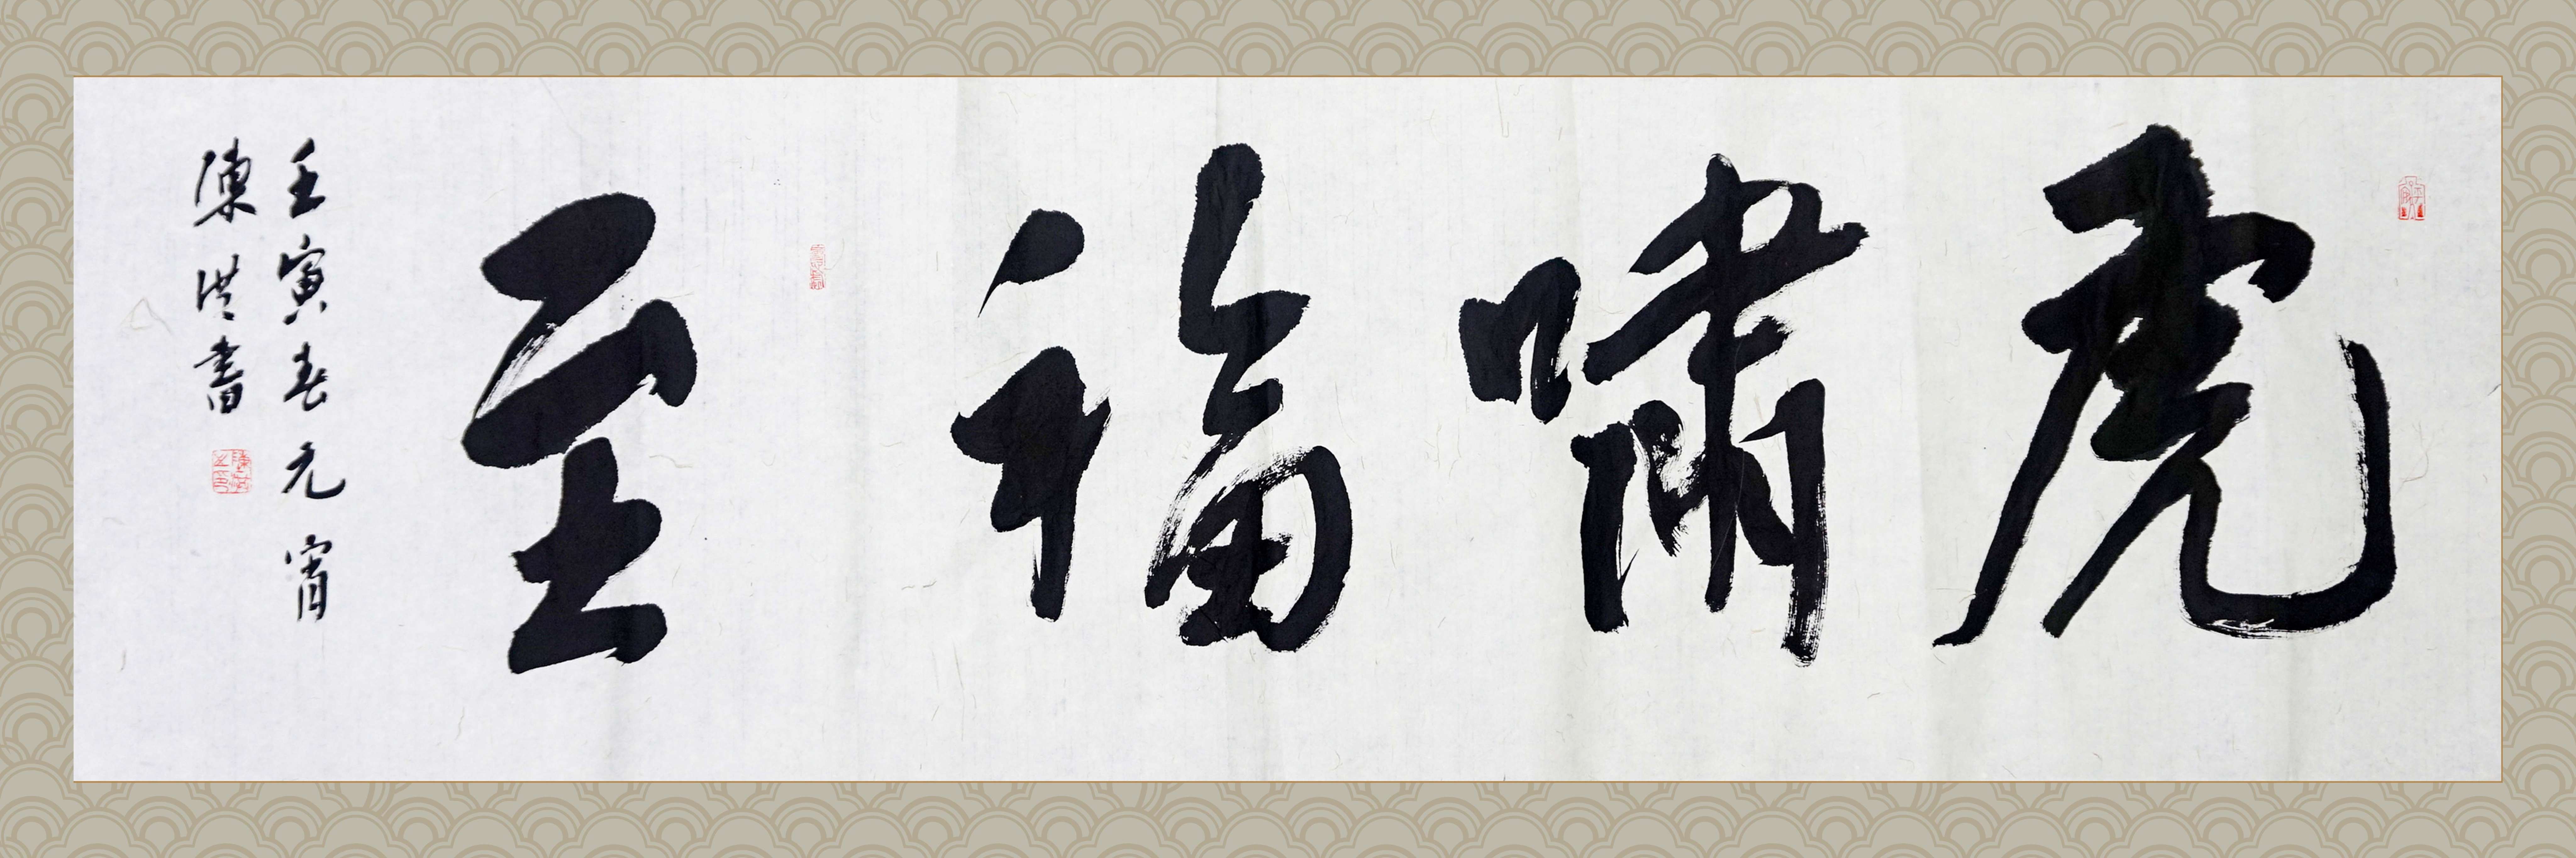 虎嘯福至
壬寅春元宵
陳洪書